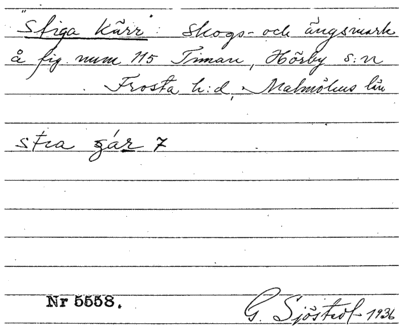 "Stiga Kärr": Skogs- och ängsmark
å fig. num 115 Timan, Hörby s:n
Frosta h:d, Malmöhus län
stıa gár 7
Nr 5558.
G. Sjöstrof 1936